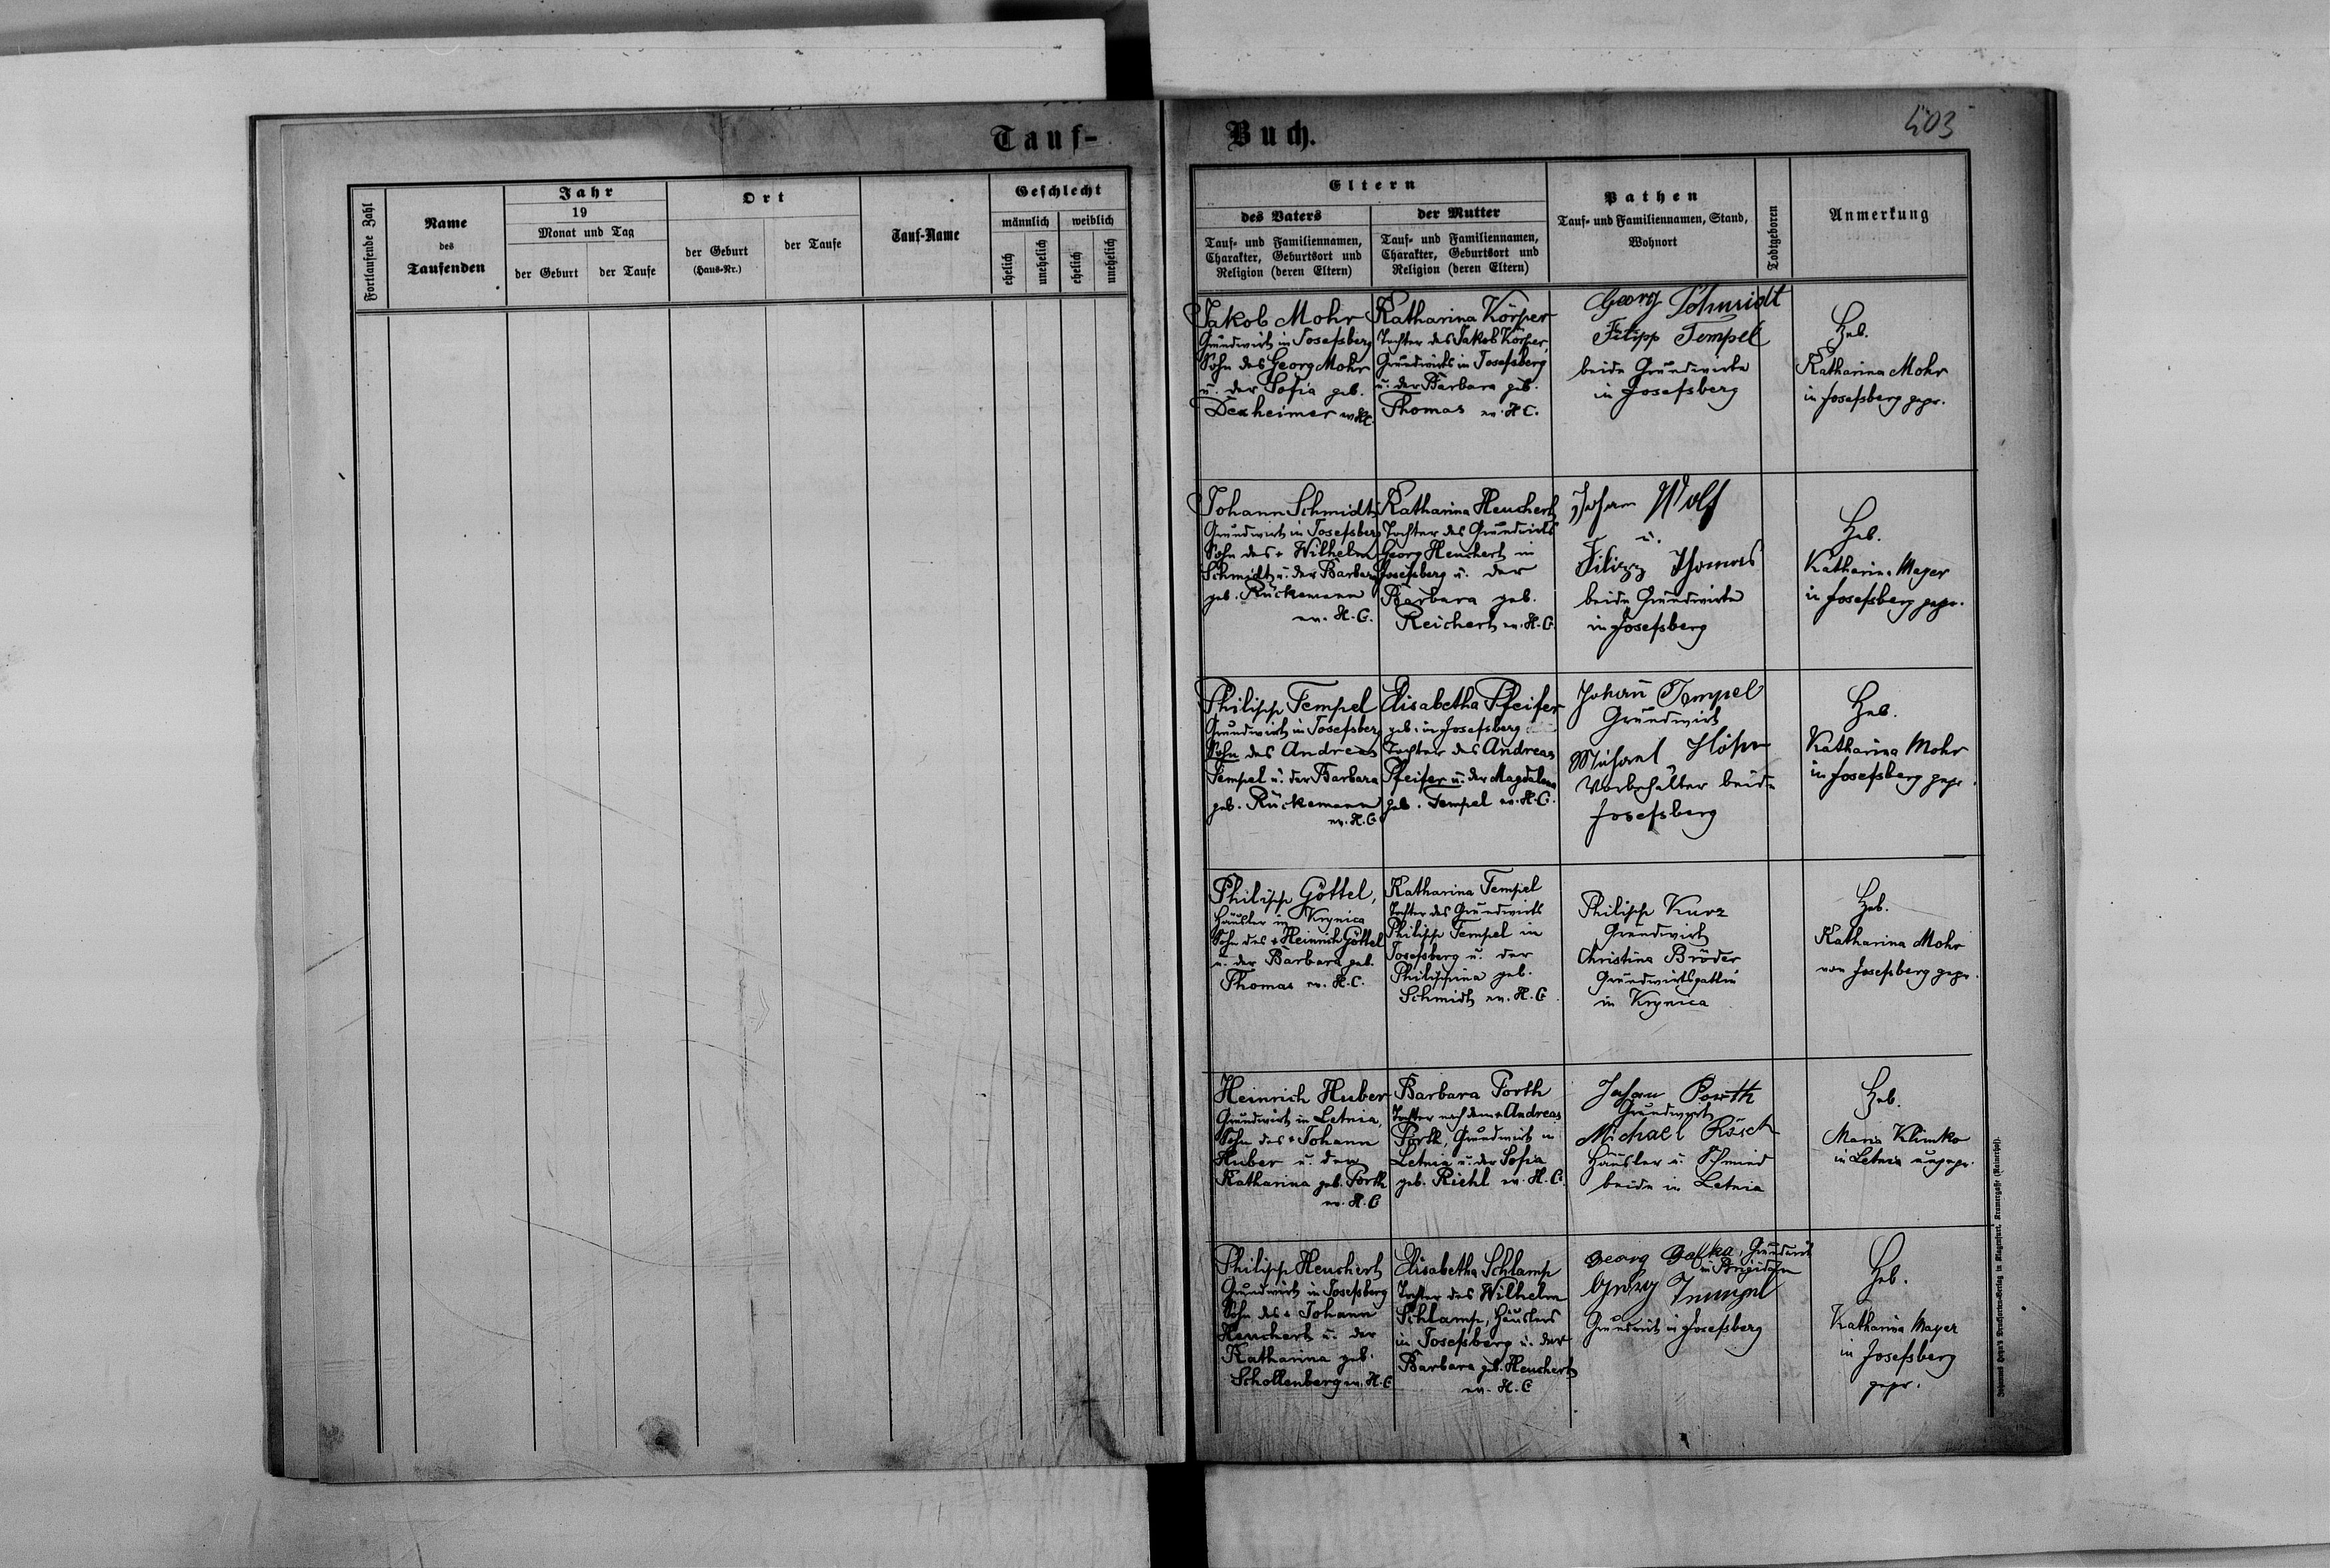 Tauf-
Fortlaufende Zahl
Name
des
Taufenden
Jahr
19
Monat und Tag
der Geburt
der Taufe
Ort
der Geburt
(Haus-Nr.)
der Taufe
Tauf-Name
Geschlecht
männlich
weiblich
ehelich
unehelich
ehelich
unehelich
Buch.
403
Eltern
des Vaters
Tauf- und Familiennamen,
Charakter, Geburtsort und
Religion (deren Eltern)
der Mutter
Tauf- und Familiennamen,
Charakter, Geburtsort und
Religion (deren Eltern)
Pathen
Tauf- und Familiennamen, Stand,
Wohnort
Todtgeboren
Anmerkung
Jakob Mohr
Grundwirt in Josefsberg
Sohn des Georg Mohr
u. der Sofia geb.
Dexheimer ev. H.C.
Katharina Körper
Tochter des Jakob Körper,
Grundwirts in Josefsberg
u. der Barbara geb.
Thomas ev. H.C.
Georg Schmidt
Filipp Tempel
beide Grundwirte
in Josefsberg
Heb.
Katharina Mohr
in Josefsberg gepr.
Johann Schmidt
Grundwirt in Josefsberg
Sohn des + Wilhelm
Schmidt u. der Barbara
geb. Rückemann
ev. H.C.
Katharina Heuchert
Tochter des Grundwirts
Georg Heuchert in
Josefsberg u. der
Barbara geb.
Reichert ev. H.C.
Johann Wolf
u.
Filipp Thomas
beide Grundwirte
in Josefsberg
Heb.
Katharina Mayer
in Josefsberg gepr.
Philipp Tempel
Grundwirt in Josefsberg
Sohn des Andreas
Tempel u. der Barbara
geb. Rückemann
ev. H.C.
Elisabetha Pfeifer
geb. in Josefsberg
Tochter des Andreas
Pfeifer u. der Magdalena
geb. Tempel ev. H.C.
Johann Tempel
Grundwirt
Michael
Vorbehalter beide
Josefsberg
Heb.
Katharina Mohr
in Josefsberg gepr.
Philipp Göttel,
Häusler in Krynica
Sohn des + Heinrich Göttel
u. der Barbara geb.
Thomas ev. H.C.
Katharina Tempel
Tochter des Grundwirts
Philipp Tempel in
Josefsberg u. der
Philippina geb.
Schmidt ev. H.C.
Philipp Kurz
Grundwirt
Christina Bröder
Grundwirtsgattin
in Krynica
Heb.
Katharina Mohr
von Josefsberg gepr.
Heinrich Huber
Grundwirt in Letnia,
Sohn des + Johann
Huber u. der
Katharina geb. Porth
ev. H.C
Barbara Porth
Tochter nach dem + Andreas
Porth, Grundwirt in
Letnia u. der Sofia
geb. Richl ev. H.C.
Johann Porth
Grundwirt
Michael Rösch
Häusler u. Schmied
beide in Letnia
Heb.
Maria Klimko
in Letnia ungepr.
Philipp Heuchert
Grundwirt in Josefsberg
Sohn des + Johann
Heuchert u. der
Katharina geb.
Schollenberg ev. H.C
Elisabetha Schlamp
Tochter des Wilhelm
Schlamp, Häuslers
in Josefsberg u. der
Barbara geb. Heuchert
ev. H.C
Georg Galka, Grundwirt
in Brigidau
Georg Tempel
Grundwirt in Josefsberg
Heb.
Katharina Mayer
in Josefsberg
gepr.